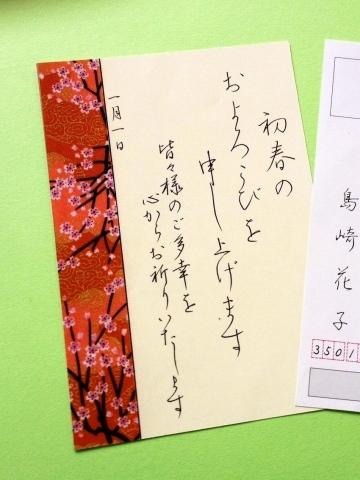 初春の
およろこびを
申し上げます
皆々様のご多幸を
心からお祈りいたします
一月一日
島崎花子
3501